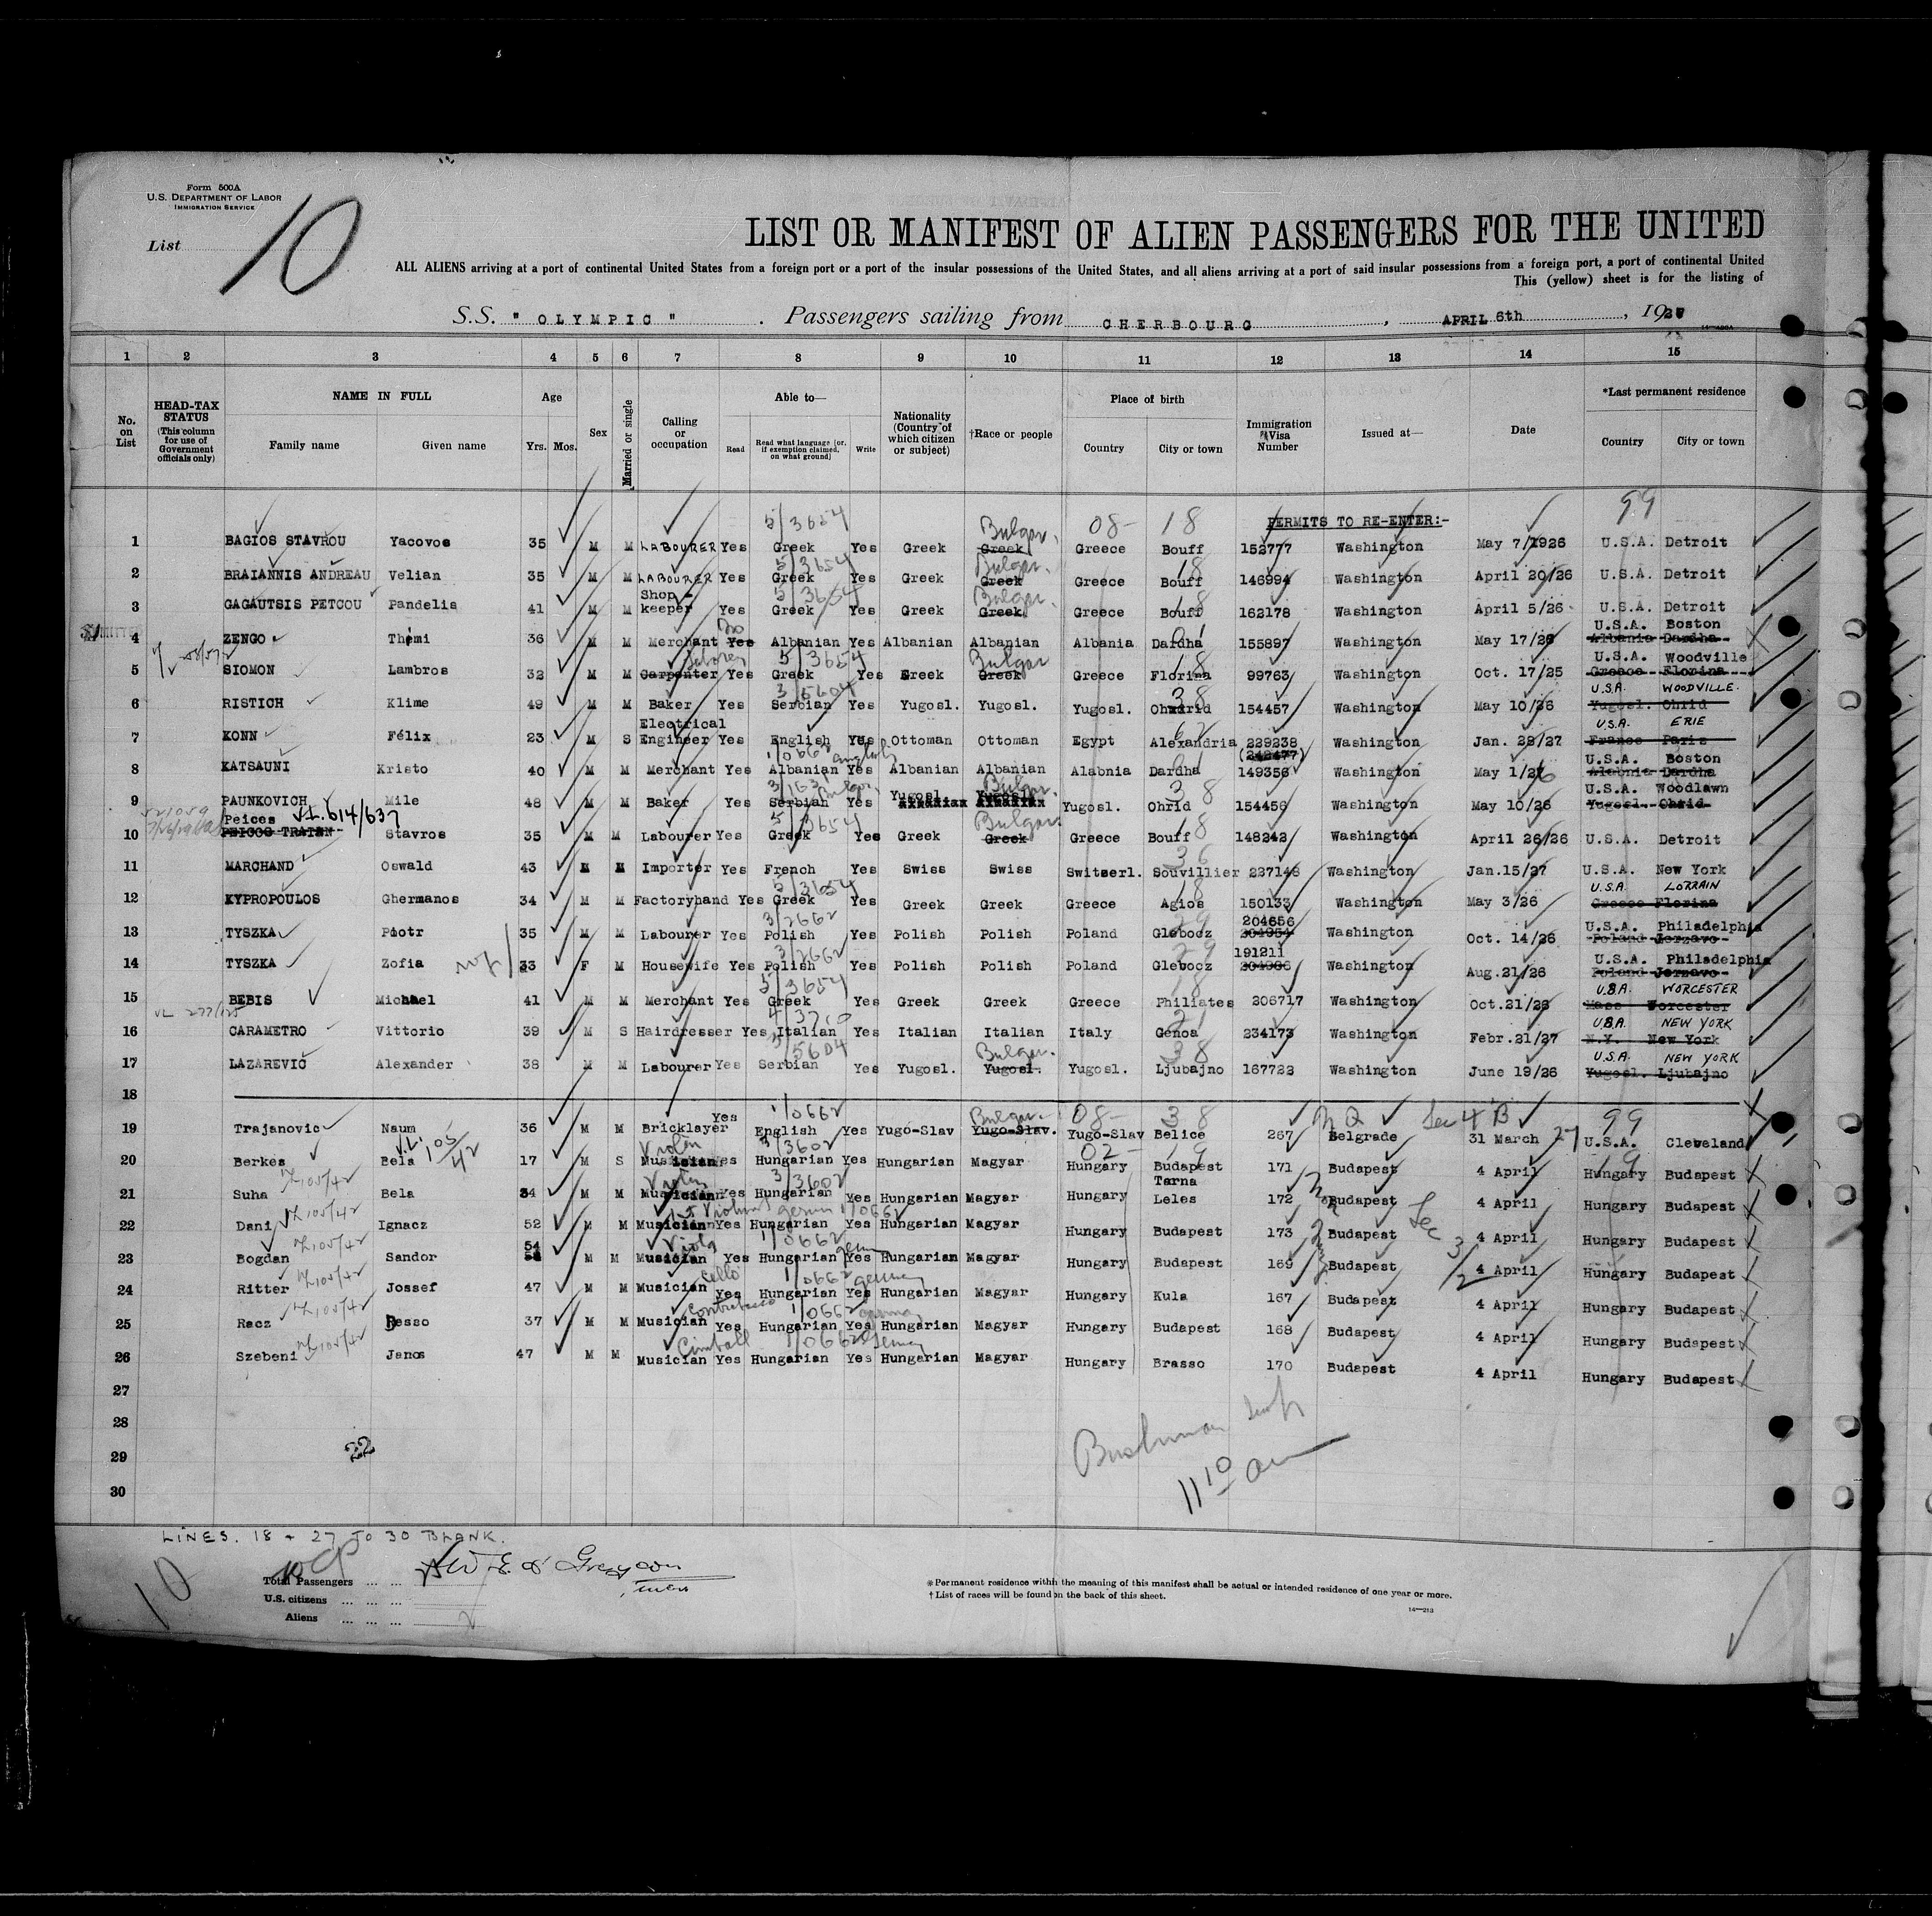 Form 500A
U.S. DEPARTMENT OF LABOR
IMMIGRATION SERVICE
List 10
LIST OR MANIFEST OF ALIEN PASSENGERS FOR THE UNITED
ALL ALIENS arriving at a port of continental United States from a foreign port or a port of the insular possessions of the United States, and all aliens arriving at a port of said insular possessions from a foreign port, a port of continental United
This (yellow) sheet is for the listing of
S.S. "OLYMPIC". Passengers sailing from CHERBOURG, APRIL 6th, 1927
1 2 3 4 5 6 7 8 9 10 11 12 13 14 15
No. on List
HEAD-TAX STATUS (This column for use of Government officials only)
NAME IN FULL Family name Given name
Age Yrs. Mos.
Sex
Married or single
Calling or occupation
Able to— Read Read what language (or, if exemption claimed, on what ground) Write
Nationality (Country of which citizen or subject)
†Race or people
Place of birth Country City or town
Immigration Visa Number
Issued at—
Date
*Last permanent residence Country City or town
5/3654 08- 18 PERMITS TO RE-ENTER:- 99
1 BAGIOS STAVROU Yacovos 35 M M LABOURER Yes Greek Yes Greek Greek Bulgar. Greece Bouff 152777 Washington May 7/1926 U.S.A. Detroit
2 BRAIANNIS ANDREAU Velian 35 M M LABOURER Yes 5/3654 Greek Yes Greek Greek Bulgar. Greece Bouff 18 146994 Washington April 20/26 U.S.A. Detroit
3 GAGAUTSIS PETCOU Pandelis 41 M M Shop-keeper Yes 5/3654 Greek Yes Greek Greek Bulgar. Greece Bouff 18 162178 Washington April 5/26 U.S.A. Detroit
4 ZENGO Themi 36 M M Merchant Yes No Albanian Yes Albanian Albanian Albania Dardha 155897 Washington May 17/26 Albania Dardha U.S.A. Boston
5 SIOMON Lambros 32 M M Carpenter Laborer Yes 5/3654 Greek Yes Greek Greek Bulgar Greece Florina 18 99763 Washington Oct. 17/25 Greece Florina U.S.A. Woodville
6 RISTICH Klime 49 M M Baker Yes 3/5604 Serbian Yes Yugosl. Yugosl. Yugosl. Ohrid 38 154457 Washington May 10/26 Yugosl. Ohrid U.S.A. WOODVILLE.
7 KONN Félix 23 M S Electrical Engineer Yes English Yes Ottoman Ottoman Egypt Alexandria 62 229238 (242477) Washington Jan. 28/27 France Paris U.S.A. ERIE
8 KATSAUNI Kristo 40 M M Merchant Yes 1/0662 Albanian Yes Albanian Albanian Alabnia Dardha 149356 Washington May 1/26 Alabnia Dardha U.S.A. Boston
9 PAUNKOVICH Mile 48 M M Baker Yes Serbian Yes Yugosl. Yugosl. Bulgar. Yugosl. Ohrid 38 154456 Washington May 10/26 Yugosl. Ohrid U.S.A. Woodlawn
10 Peices VL.614/637 Stavros 35 M M Labourer Yes 5/3654 Greek Yes Greek Greek Bulgar. Greece Bouff 18 148242 Washington April 26/26 U.S.A. Detroit
11 MARCHAND Oswald 43 M M Importer Yes French Yes Swiss Swiss Switzerl. Souvillier 36 237148 Washington Jan.15/27 U.S.A. New York
12 KYPROPOULOS Ghermanos 34 M M Factoryhand Yes 5/3654 Greek Yes Greek Greek Greece Agios 18 150133 Washington May 3/26 Greece Florina U.S.A. LORRAIN
13 TYSZKA Piotr 35 M M Labourer Yes 3/2662 Polish Yes Polish Polish Poland Glebocz 29 204656 Washington Oct. 14/26 Poland Jerzavo U.S.A. Philadelphia
14 TYSZKA Zofia 33 F M Housewife Yes 3/2662 Polish Yes Polish Polish Poland Glebocz 29 191211 Washington Aug.21/26 Poland Jerzavo U.S.A. Philadelphia
15 BEBIS Michael 41 M M Merchant Yes 5/3654 Greek Yes Greek Greek Greece Philiates 18 206717 Washington Oct.21/26 Mass Worcester U.S.A. WORCESTER
16 VL 277/125 CARAMETRO Vittorio 39 M S Hairdresser Yes 4/3710 Italian Yes Italian Italian Italy Genoa 21 234173 Washington Febr.21/27 N.Y. New York U.S.A. NEW YORK
17 LAZAREVIĆ Alexander 38 M M Labourer Yes 3/5604 Serbian Yes Yugosl. Yugosl. Bulgar. Yugosl. Ljubajno 38 167722 Washington June 19/26 Yugosl. Ljubajno U.S.A. NEW YORK
18
19 Trajanovic Naum 36 M M Bricklayer Yes 1/0662 English Yes Yugo-Slav Yugo-Slav. Bulgar. 08- Yugo-Slav Belice 38 267 N Q Belgrade Sec 4 B 31 March 27 99 U.S.A. Cleveland
20 Berkes Bela VL 105/42 17 M S Violin Musician Yes 3/3602 Hungarian Yes Hungarian Magyar 02- Hungary Budapest 19 171 Budapest 4 April 19 Hungary Budapest
21 Suha VL105/42 Bela 34 M M Violin Musician Yes 3/3602 Hungarian Yes Hungarian Magyar Hungary Tarna Leles 172 Budapest 4 April Hungary Budapest
22 Dani VL105/42 Ignacz 52 M M Musician Yes Hungarian 1/0662 Yes Hungarian Magyar Hungary Budapest 173 Budapest Sec 3/2 4 April Hungary Budapest
23 Bogdan VL105/42 Sandor 54 M M Viola Musician Yes 1/0662 Hungarian Yes Hungarian Magyar Hungary Budapest 169 Budapest 4 April Hungary Budapest
24 Ritter VL105/42 Jossef 47 M M Cello Musician Yes 1/0662 German Hungarian Yes Hungarian Magyar Hungary Kula 167 Budapest 4 April Hungary Budapest
25 Racz VL105/42 Desso 37 M M Contrabasso Musician Yes 1/0662 German Hungarian Yes Hungarian Magyar Hungary Budapest 168 Budapest 4 April Hungary Budapest
26 Szebeni VL105/42 Janos 47 M M Cimball Musician Yes 1/0662 German Hungarian Yes Hungarian Magyar Hungary Brasso 170 Budapest 4 April Hungary Budapest
27
28
29
30
22
11 10 am
LINES. 18 + 27 TO 30 BLANK.
10
Total Passengers ... ...
U.S. citizens ... ... ...
Aliens ... ... ...
*Permanent residence within the meaning of this manifest shall be actual or intended residence of one year or more.
†List of races will be found on the back of this sheet.
14—213